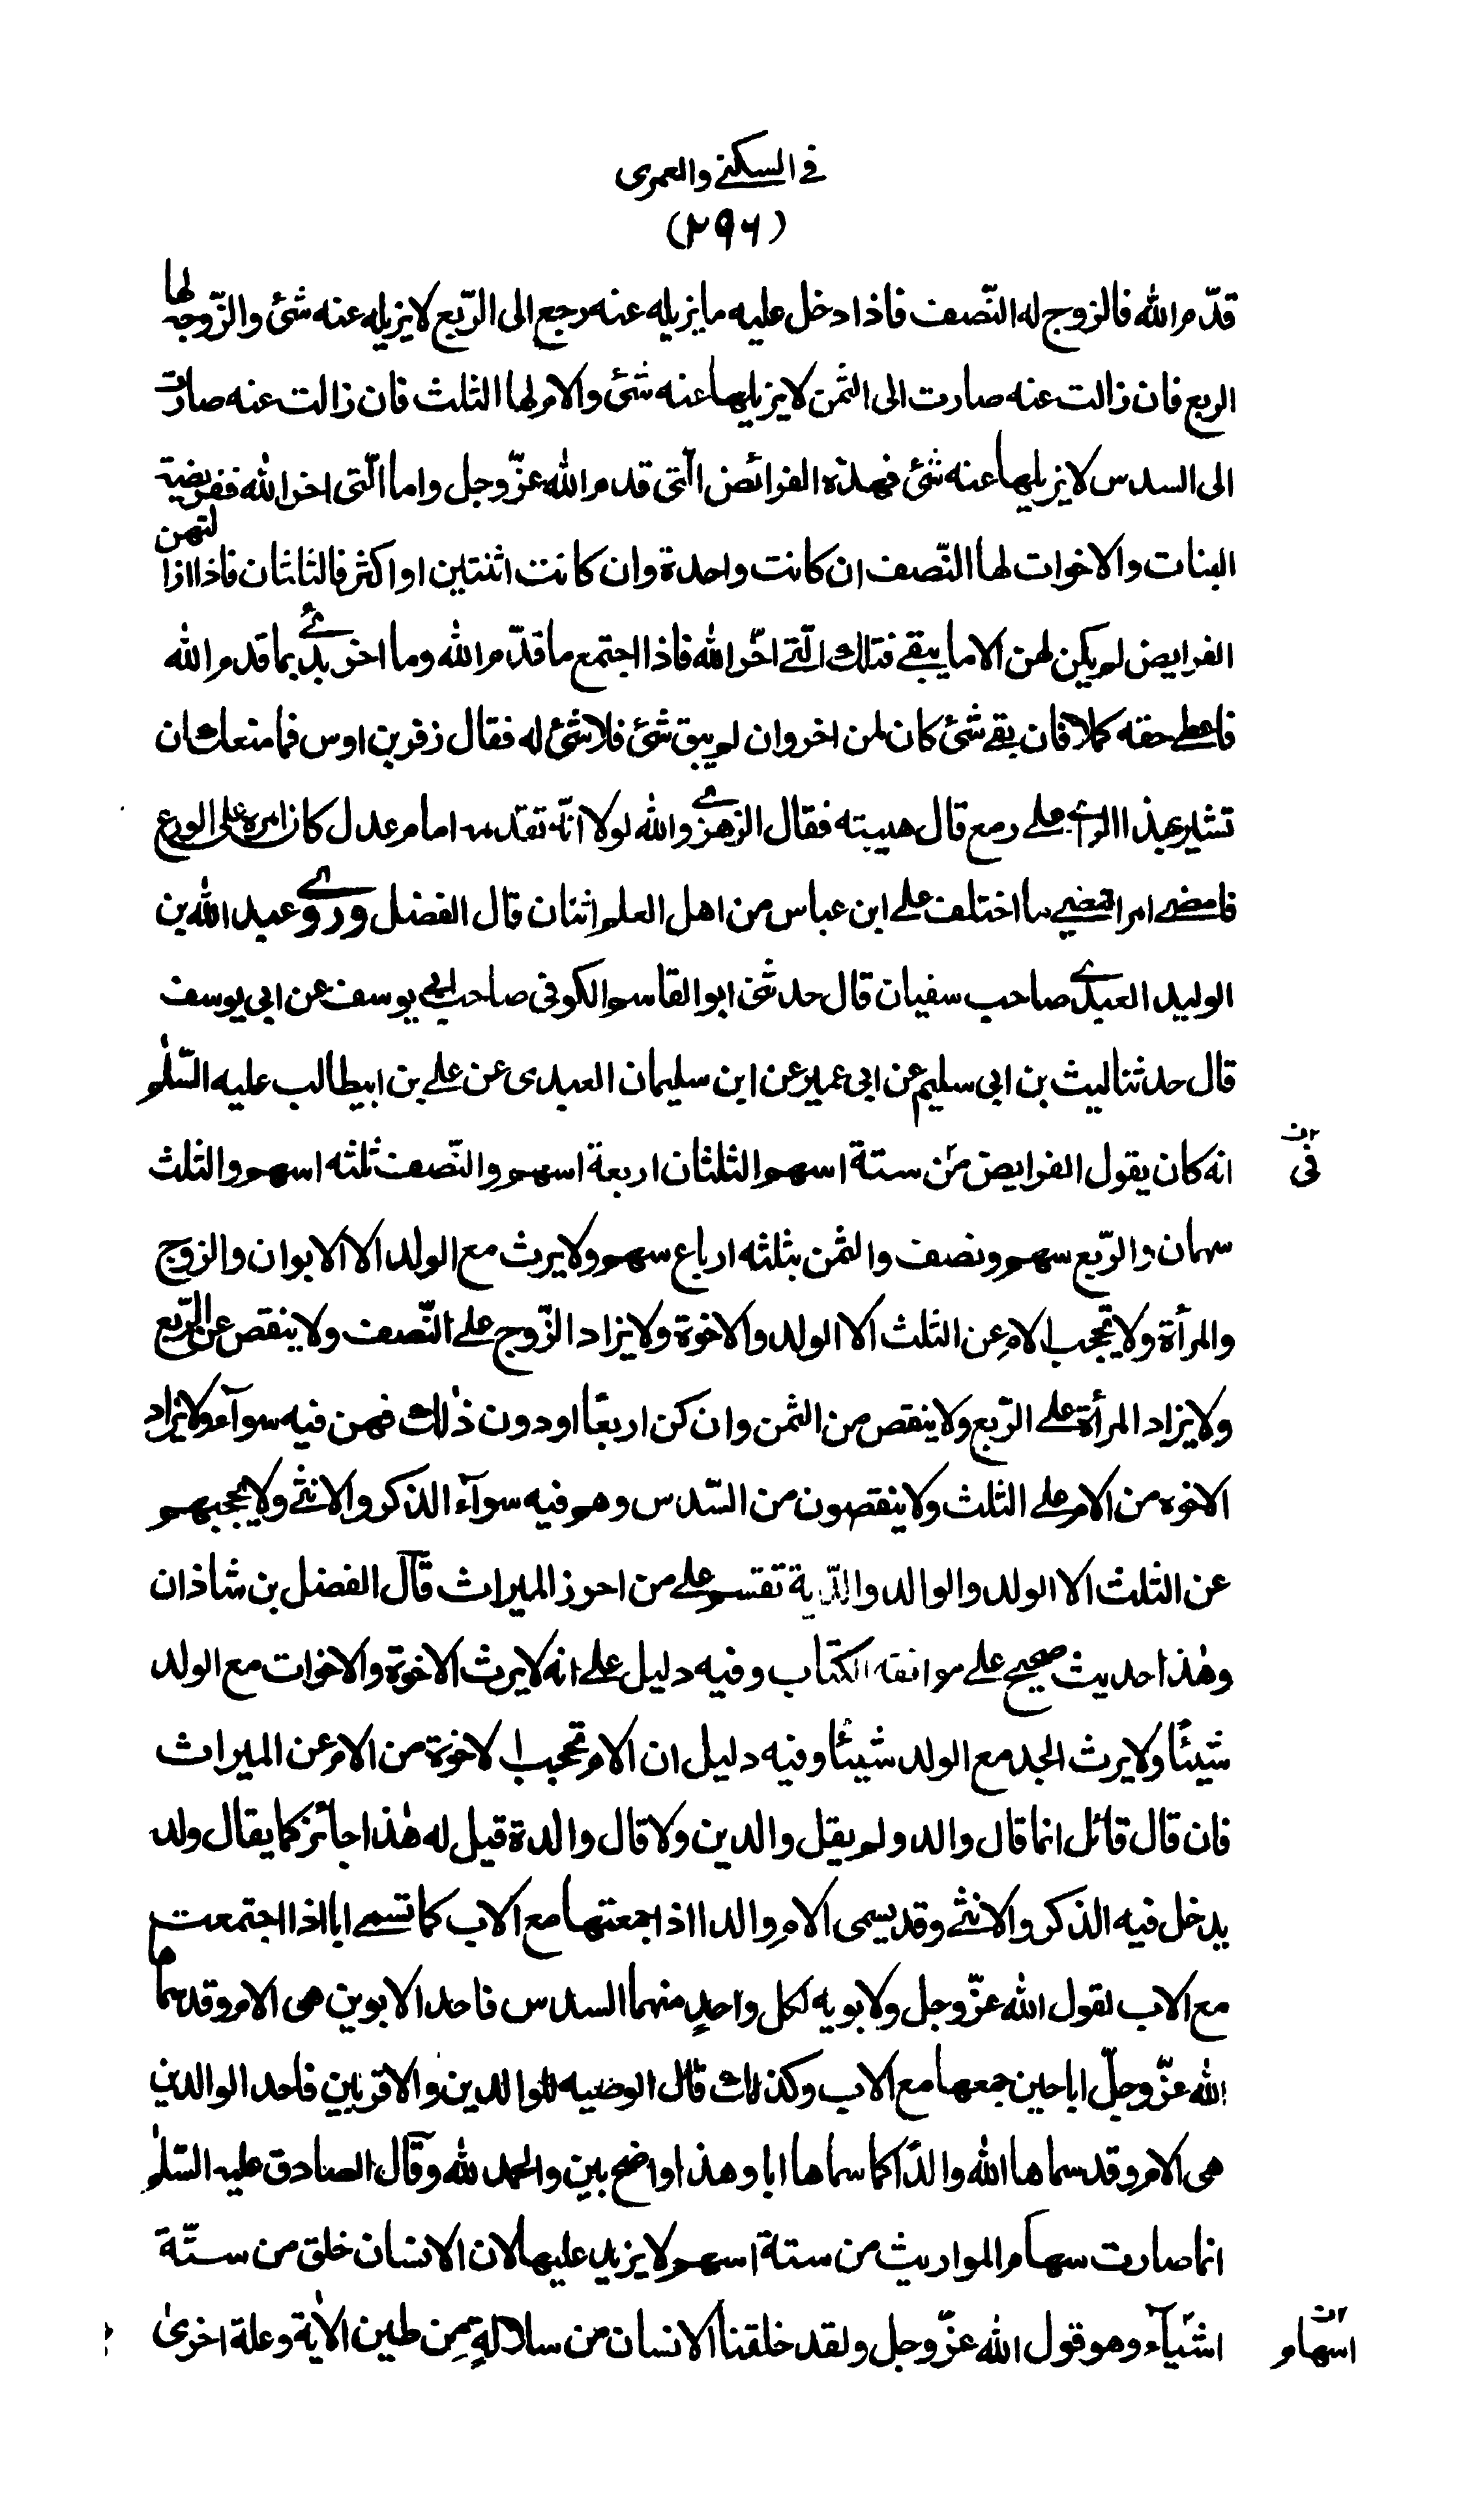 في السكنى والعمرى
(٢٩٦)
قدّم الله فالزوج له النّصف فاذا دخل عليه ما يزيله عنه رجع الى الرّبع لا يزيله عنه شئ والزّوجة لها
الربع فان زالت عنه صارت الى الثمن لا يزيلها عنه شئ والام لها الثلث فان زالت عنه صارت
الى السدس لا يزيلها عنه شئ فهذه الفرائض الّتى قدم الله عزّ وجل واما الّتى اخر الله ففريضة
البنات والاخوات لها النّصف ان كانت واحدة وان كانت اثنتين او اكثر فالثلثان فاذا ازالتهن
الفرايض لم يكن لهن الا ما يبقى فتلك الّتى اخّر الله فاذا اجتمع ما قدّم الله وما اخر بدئ بما قدم الله
فاعطى حقه كملا فان بقى شئ كان لمن اخر وان لم يبق شئ فلا شئ له فقال زفر بن اوس فما منعك ان
تشير بهذا الرأى على رمع قال هيبته فقال الزهرى والله لولا انّه تقدمه امام عدل كان امره على الورع
فامضى امرا فمضى ما اختلف على ابن عباس من اهل العلم اثنان قال الفضل وروى عبد الله بن
الوليد العبدى صاحب سفيان قال حدثنى ابو القاسم الكوفى صاحب ابى يوسف عن ابى يوسف
قال حدثنا ليث بن ابى سليم عن ابى عمير عن ابن سليمان العبدى عن على بن ابيطالب عليه السّلم
انه كان يقول الفرايض من ستة اسهم الثلثان اربعة اسهم والنّصف ثلثه اسهم والثلث
فى
سهمان والرّبع سهم ونصف والثمن بثلثه ارباع سهم ولا يرث مع الولد الا الابوان والزوج
والمرأة ولا يحجب الام عن الثلث الا الولد والاخوة ولا يزاد الزّوج على النّصف ولا ينقص عن الرّبع
ولا يزاد المرأة على الرّبع ولا ينقص من الثمن وان كن اربعًا او دون ذلك فهن فيه سوآء ولا يزاد
الاخوه من الام على الثلث ولا ينقصون من السّدس وهم فيه سوآء الذكر والانثى ولا يحجبهم
عن الثلث الا الولد والوالد والدّية تقسم على من احرز الميراث قال الفضل بن شاذان
وهذا حديث صحيح على موافقه الكتاب وفيه دليل على انه لا يرث الاخوة والاخوات مع الولد
شيئًا ولا يرث الجد مع الولد شيئًا وفيه دليل ان الام تحجب الاخوة من الام عن الميراث
فان قال قائل انما قال والد ولم يقل والدين ولا قال والدة قيل له هذا جائز كما يقال ولد
يدخل فيه الذكر والانثى وقد يسمى الام والدا اذا جمعتها مع الاب كما تسمى ابا اذا اجتمعت
مع الاب لقول الله عزّ وجل ولابويه لكل واحدٍ منهما السدس فاحد الابوين هى الام وقد سماها
الله عزّ وجلّ ابا حين جمعها مع الاب وكذلك قال الوصيه للوالدين والاقربين فاحد الوالدين
هى الام وقد سماها الله والدًا كما سماها ابا وهذا واضح بين والحمد لله وقال الصادق عليه السّلم
انما صارت سهام المواريث من ستة اسهم لا يزيد عليها لان الانسان خلق من ستّة
اشيآء وهو قول الله عزّ وجل ولقد خلقنا الانسان من سلالةٍ من طين الاية وعلة اخرى
اسهام